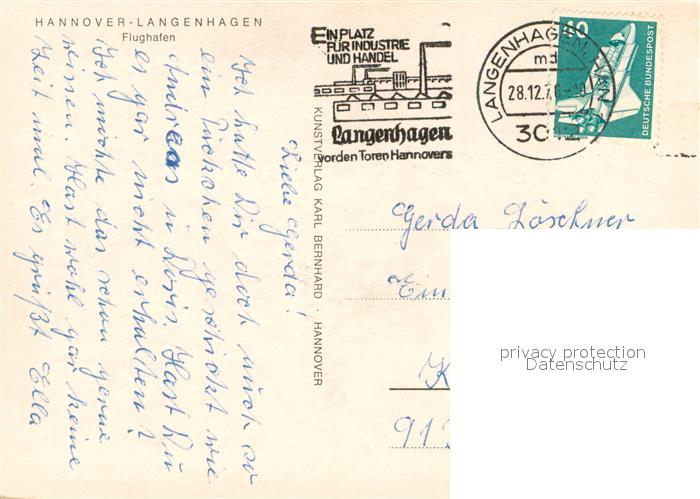 HANNOVER-LANGENHAGEN
Flughafen
Liebe Gerda!
Ich hatte Dir doch auch so
ein Päckchen geschickt wie
Andreas u Doris. Hast Du
es gar nicht erhalten?
Ich möchte das schon gerne
wissen. Hast wohl gar keine
Zeit mal. Es grüßt Ella
KUNSTVERLAG KARL BERNHARD · HANNOVER
EIN PLATZ
FÜR INDUSTRIE
UND HANDEL
Langenhagen
vor den Toren Hannovers
LANGENHAGEN
md
28.12.76-
40
DEUTSCHE BUNDESPOST
Gerda Löschner
Ein
K
91
privacy protection
Datenschutz